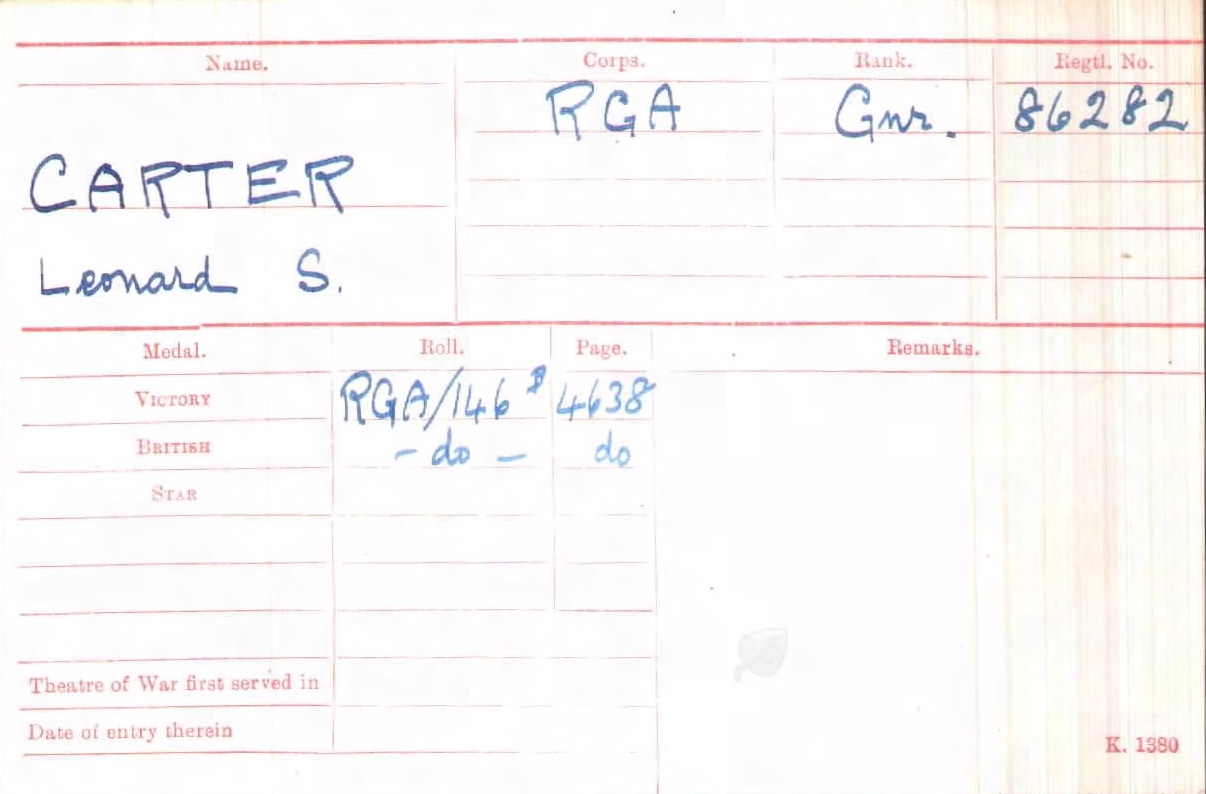 Name. Corps. Rank. Regtl. No.
RGA Gnr. 86282
CARTER
Leonard S.
Medal. Roll. Page. Remarks.
VICTORY RGA/146 B 4638
BRITISH - do - do
STAR
Theatre of War first served in
Date of entry therein
K. 1380